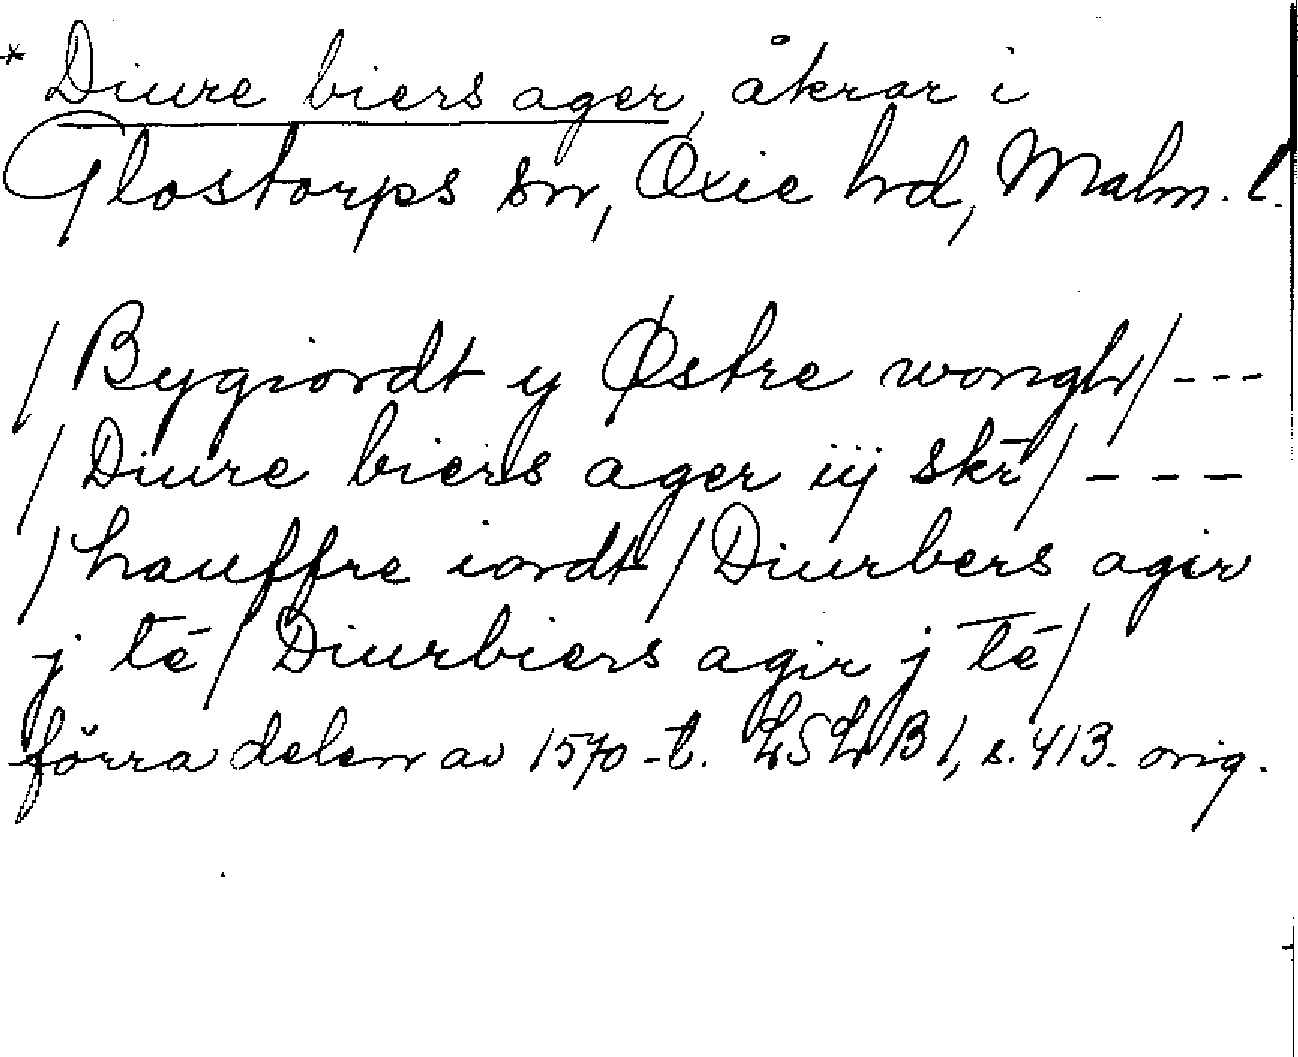 * Diure biers ager, åkrar i
Glostorps sn, Oxie hd, Malm. l.
/Bygiordt y Østre wongh/ ---
/Diure biers ager iij skr̄/ ---
/hauffre iordt/ Diurbers agir
j tē/ Diurbiers agir j tē/
förra delen av 1570-t. LSLB 1, s. 413. orig.